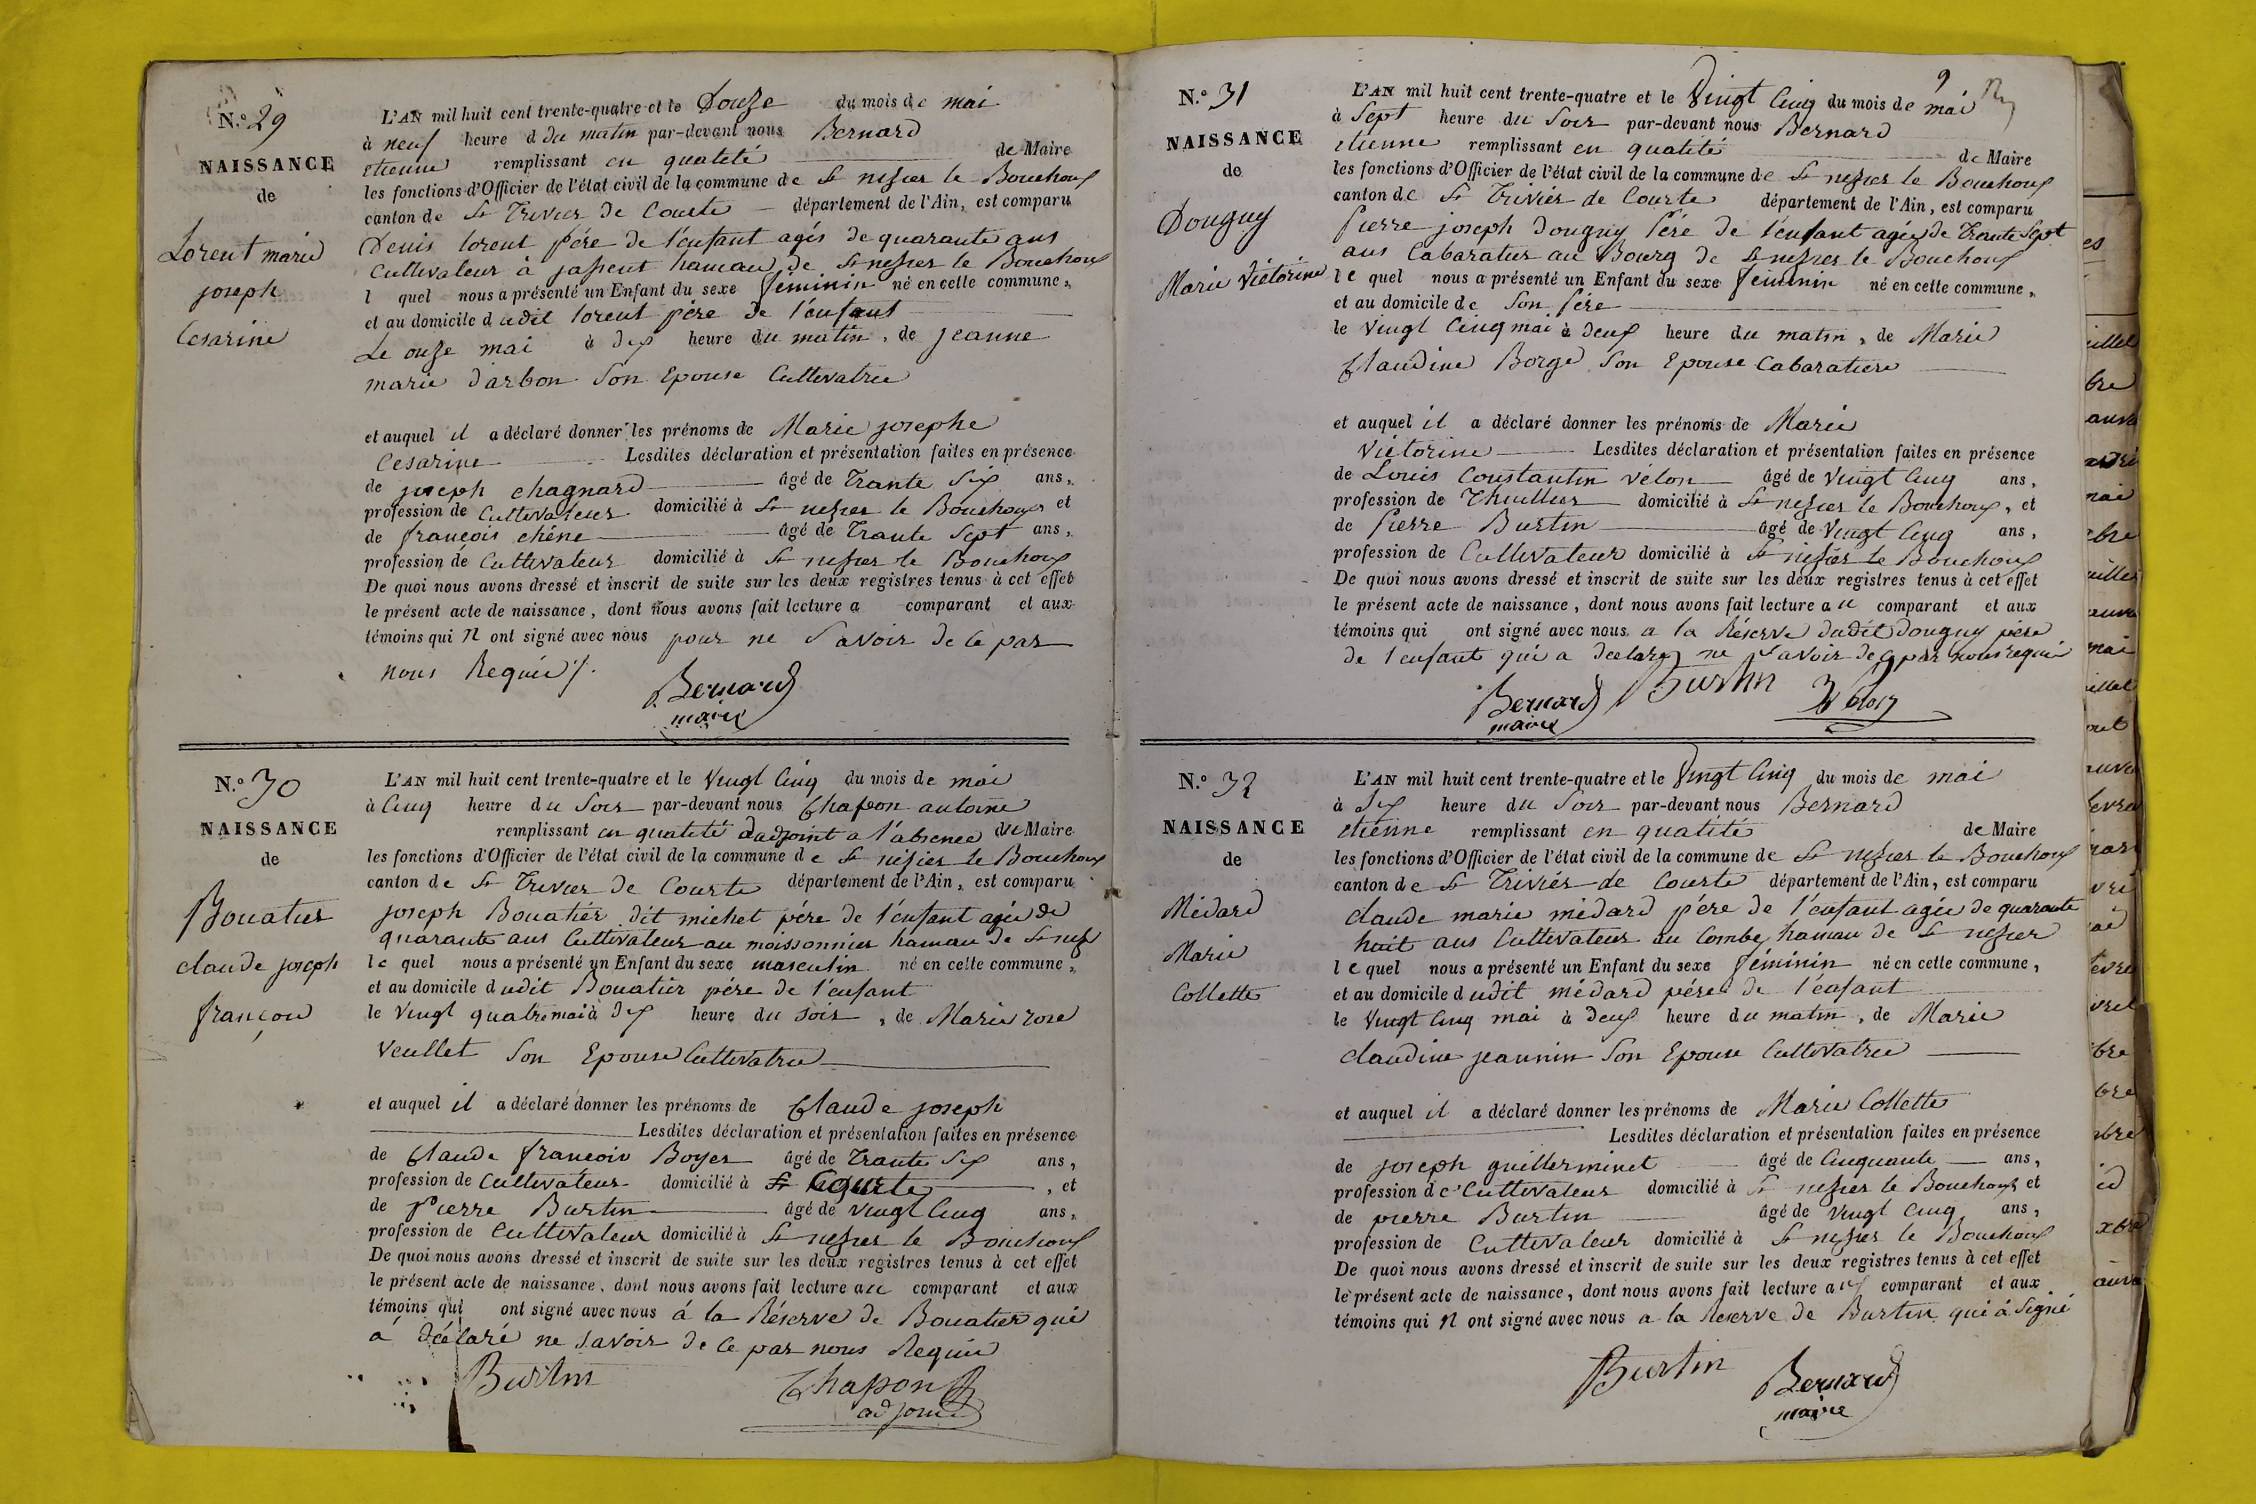 N.° 29
NAISSANCE
de
Lorent marie
joseph
Cesarine
L'AN mil huit cent trente-quatre et le Douze du mois de mai
à neuf heure d du matin par-devant nous Bernard
etienne remplissant en qualité de Maire
les fonctions d'Officier de l'état civil de la commune de St nisier le Bouchoux
canton de St Trivier de Courte département de l'Ain, est comparu
Denis lorent pére de l'enfant agés de quarante ans
Cultivateur à hamau de St nisier le Bouchoux
l quel nous a présenté un Enfant du sexe féminin né en cette commune,
et au domicile dudit lorent pére de l'enfant
Le onze mai à dix heure du matin, de jeanne
marie darbon Son Epouse Cultivatrice
et auquel il a déclaré donner les prénoms de Marie josephe
Cesarine Lesdites déclaration et présentation faites en présence
de joseph chagnard âgé de Trante Six ans,
profession de Cultivateur domicilié à St nisier le Bouchoux et
de françois chéne âgé de Trante Sept ans,
profession de Cultivateur domicilié à St nisier le Bouchoux
De quoi nous avons dressé et inscrit de suite sur les deux registres tenus à cet effet
le présent acte de naissance, dont nous avons fait lecture a comparant et aux
témoins qui n ont signé avec nous pour ne Savoir de ce par
nous Requis
Bernard
maire
N.° 30
NAISSANCE
de
Bouatier
claude joseph
françois
L'AN mil huit cent trente-quatre et le Vingt Cinq du mois de mai
à Cinq heure du Soir par-devant nous Chapon antoine
remplissant en qualité dadjoint a l'absence du Maire
les fonctions d'Officier de l'état civil de la commune de St nisier le Bouchoux
canton de St Trivier de Courte département de l'Ain, est comparu
joseph Bouatier dit michet pére de l'enfant agée de
quarante ans Cultivateur au moissonnier hamau de St nizi
le quel nous a présenté un Enfant du sexe masculin né en cette commune,
et au domicile dudit Bouatier pére de l'enfant
le Vingt quatre mai à dix heure du soir, de Marie rose
Veullet Son Epouse Cultivatrice
et auquel il a déclaré donner les prénoms de Claude joseph
Lesdites déclaration et présentation faites en présence
de Claude françois Boyer âgé de Trante Six ans,
profession de Cultivateur domicilié à Courte, et
de Pierre Burtin âgé de Vingt Cinq ans,
profession de Cultivateur domicilié à St nisier le Bouchoux
De quoi nous avons dressé et inscrit de suite sur les deux registres tenus à cet effet
le présent acte de naissance, dont nous avons fait lecture aux comparant et aux
témoins qui ont signé avec nous á la Réserve de Bouatier qui
a déclaré ne savoir de ce par nous Requis
Burtin Chapon
adjoint
9
N.° 31
NAISSANCE
de
Douguy
Marie Victorine
L'AN mil huit cent trente-quatre et le Vingt Cinq du mois de mai
à Sept heure du Soir par-devant nous Bernard
etienne remplissant en qualité de Maire
les fonctions d'Officier de l'état civil de la commune de St nisier le Bouchoux
canton de St Triviér de Courte département de l'Ain, est comparu
Pierre joseph douguy Pére de l'enfant agée de Trante Sept
ans Cabaratier au Bourg de St nisier le Bouchoux
le quel nous a présenté un Enfant du sexe féminin né en cette commune,
et au domicile de Son Pére
le Vingt Cinq mai à deux heure du matin, de Marie
Claudine Borge Son Epouse Cabaratiere
et auquel il a déclaré donner les prénoms de Marie
Victorine Lesdites déclaration et présentation faites en présence
de Louis Constantin vélon âgé de Vingt Cinq ans,
profession de Thuillier domicilié à St nisier le Bouchoux, et
de Pierre Burtin âgé de Vingt Cinq ans,
profession de Cultivateur domicilié à St nisier le Bouchoux
De quoi nous avons dressé et inscrit de suite sur les deux registres tenus à cet effet
le présent acte de naissance, dont nous avons fait lecture au comparant et aux
témoins qui ont signé avec nous a la Réserve dudit douguy pére
de l'enfant qui a declaré ne Savoir de ce par nous requis
Bernard Burtin
maire
N.° 32
NAISSANCE
de
Médard
Marie
Collette
L'AN mil huit cent trente-quatre et le Vingt Cinq du mois de mai
à Six heure du Soir par-devant nous Bernard
etienne remplissant en qualité de Maire
les fonctions d'Officier de l'état civil de la commune de St nisier le Bouchoux
canton de St Triviér de Courte département de l'Ain, est comparu
claude marie médard pére de l'enfant agée de quarante
huit ans Cultivateur au Combe hamau de St nisier
le quel nous a présenté un Enfant du sexe féminin né en cette commune,
et au domicile dudit médard pére de l'enfant
le Vingt Cinq mai à deux heure du matin, de Marie
claudine jeannin Son Epouse Cultivatrice
et auquel il a déclaré donner les prénoms de Marie Collette
Lesdites déclaration et présentation faites en présence
de joseph guilleminet âgé de Cinquante ans,
profession de Cultivateur domicilié à St nisier le Bouchoux et
de pierre Burtin âgé de Vingt Cinq ans,
profession de Cultivateur domicilié à St nisier le Bouchoux
De quoi nous avons dressé et inscrit de suite sur les deux registres tenus à cet effet
le présent acte de naissance, dont nous avons fait lecture au comparant et aux
témoins qui n ont signé avec nous a la Réserve de Burtin qui á Signé
Burtin Bernard
maire